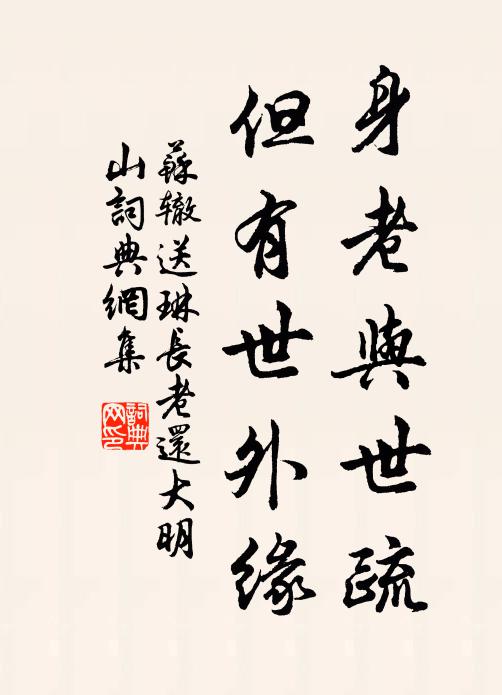 身老與世疏
但有世外緣
蘇轍送琳長老還大明
山詞典網集
詞典
网印